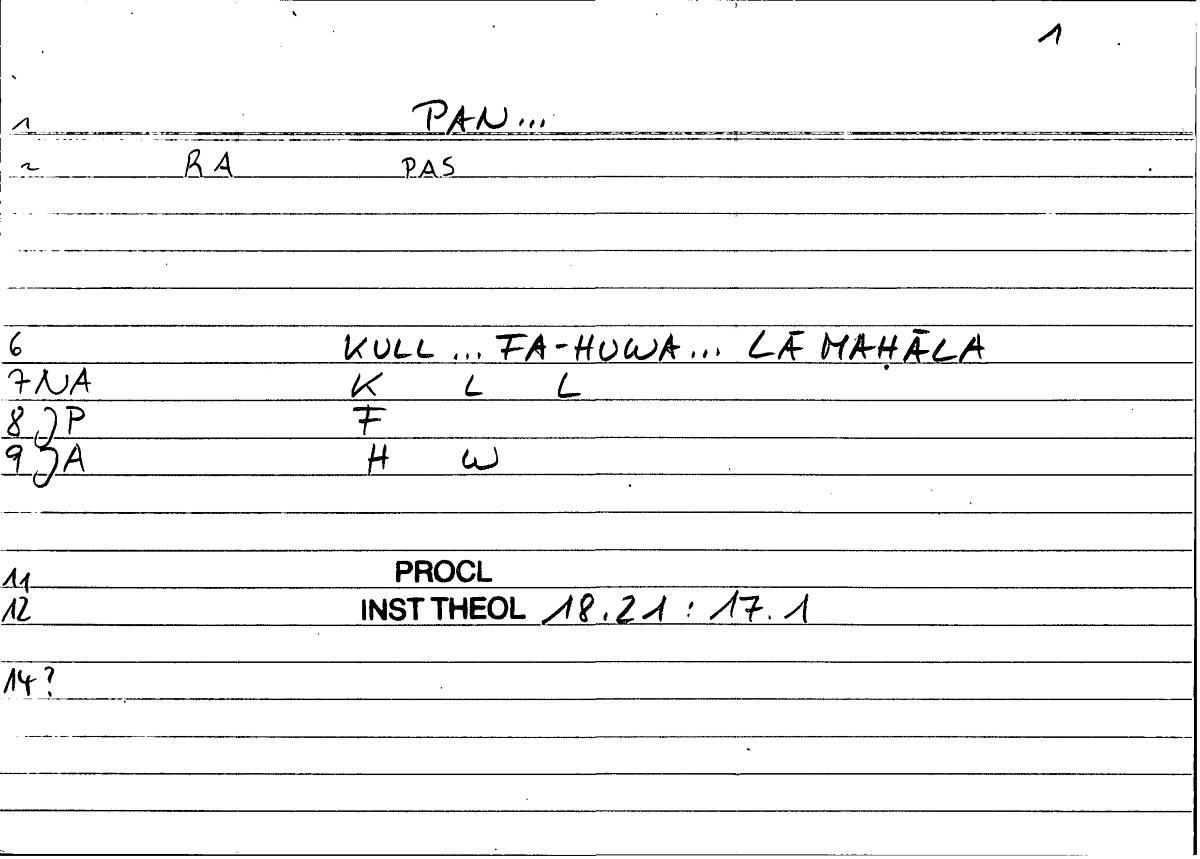 1
1 PAN...
2 RA PAS
6 KULL ... FA-HUWA... LĀ MAḤĀLA
7 NA K L L
8 JP F
9 JA H W
11 PROCL
12 INST THEOL 18.21 : 17.1
14?